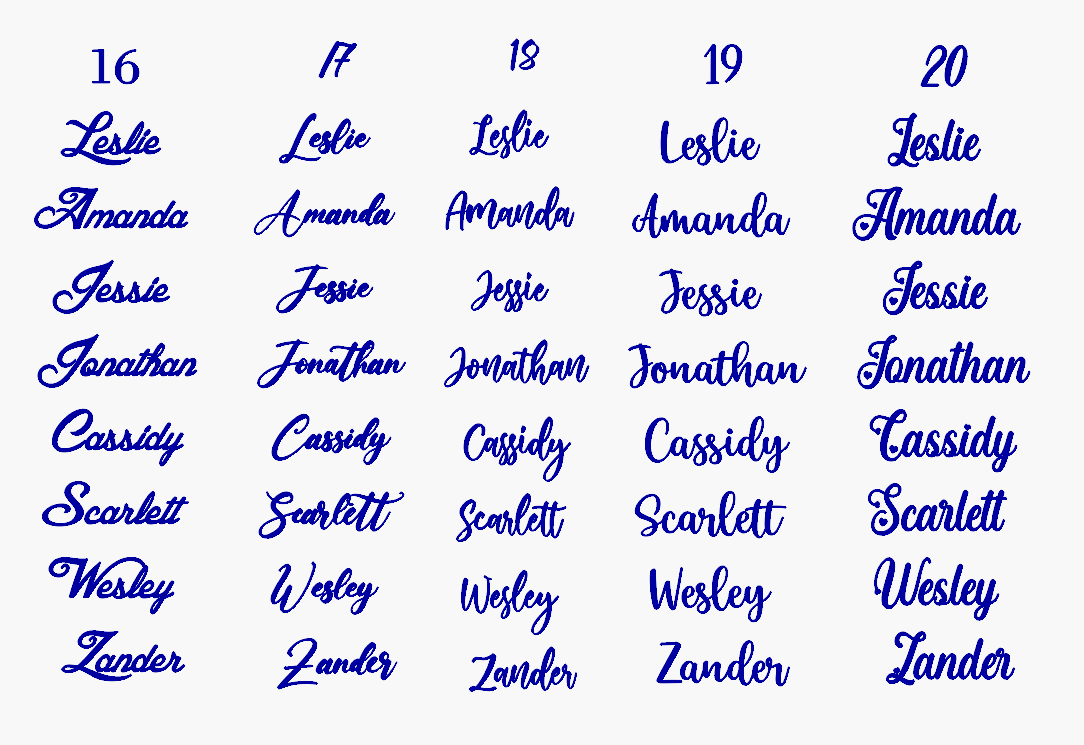 16 17 18 19 20
Leslie Leslie Leslie Leslie Leslie
Amanda Amanda Amanda Amanda Amanda
Jessie Jessie Jessie Jessie Jessie
Jonathan Jonathan Jonathan Jonathan Jonathan
Cassidy Cassidy Cassidy Cassidy Cassidy
Scarlett Scarlett Scarlett Scarlett Scarlett
Wesley Wesley Wesley Wesley Wesley
Zander Zander Zander Zander Zander